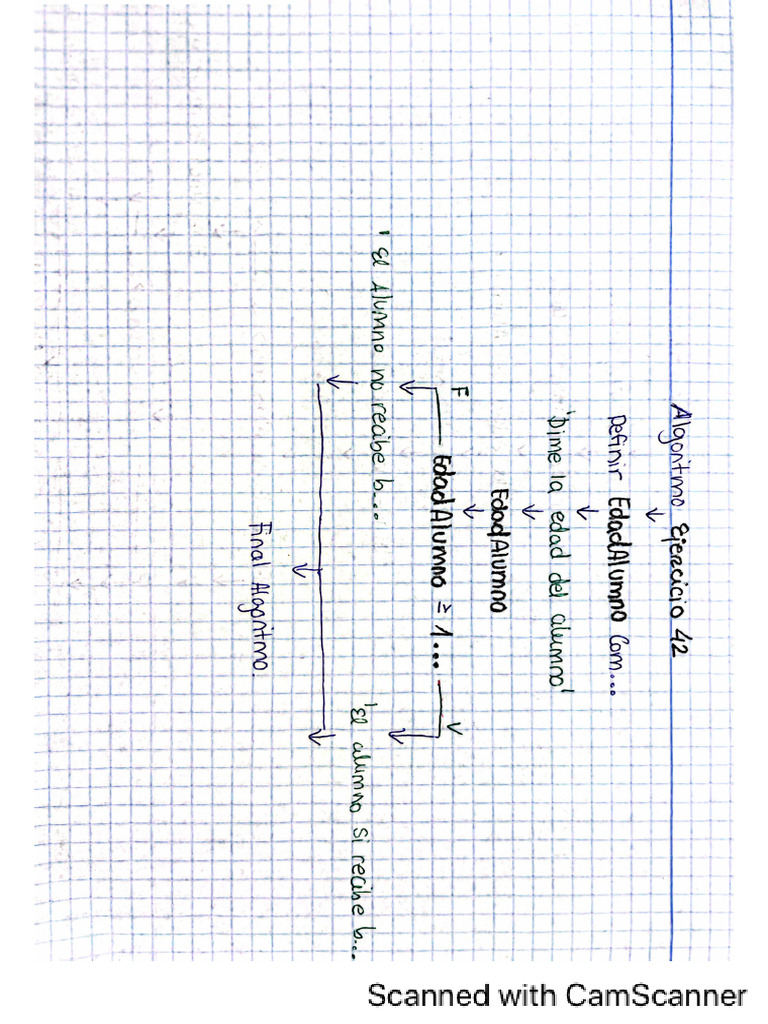 Algoritmo Ejercicio 42
Definir EdadAlumno Com...
'Dime la edad del alumno'
EdadAlumno
F EdadAlumno ≥ 1... V
'El Alumno no recibe b...
'El alumno si recibe b...
Final Algoritmo.
Scanned with CamScanner